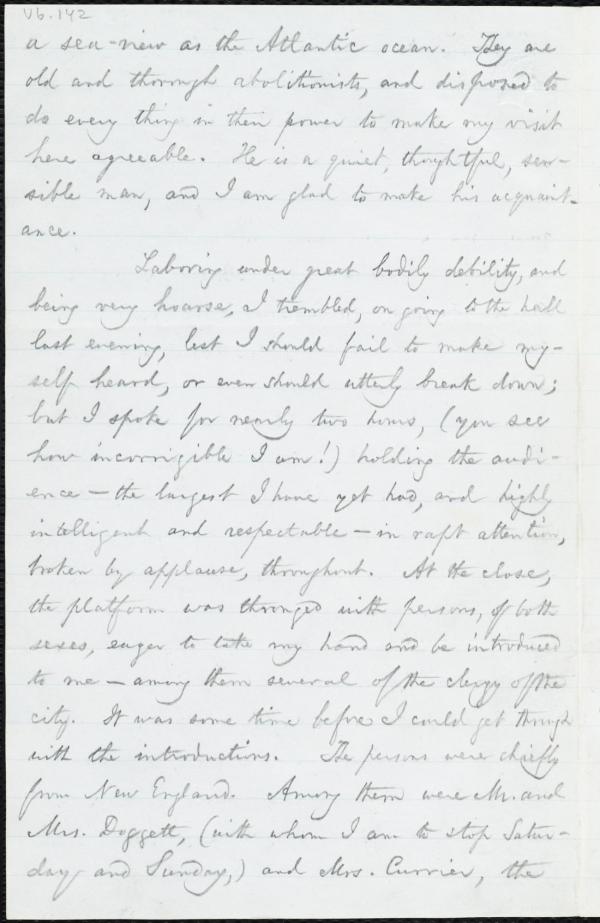 V6.142
a sea-view as the Atlantic ocean. They are
old and thorough abolitionists, and disposed to
do every thing in their power to make my visit
here agreeable. He is a quiet, thoughtful, sen-
sible man, and I am glad to make his acquaint-
ance.
Laboring under great bodily debility, and
being very hoarse, I trembled, on going to the hall
last evening, lest I should fail to make my-
self heard, or even should utterly break down;
but I spoke for nearly two hours, (you see
how incorrigible I am!) holding the audi-
ence — the largest I have yet had, and highly
intelligent and respectable — in rapt attention,
broken by applause, throughout. At the close,
the platform was thronged with persons, of both
sexes, eager to take my hand and be introduced
to me — among them several of the clergy of the
city. It was some time before I could get through
with the introductions. The persons were chiefly
from New England. Among them were Mr. and
Mrs. Doggett, (with whom I am to stop Satur-
day and Sunday,) and Mrs. Currier, the